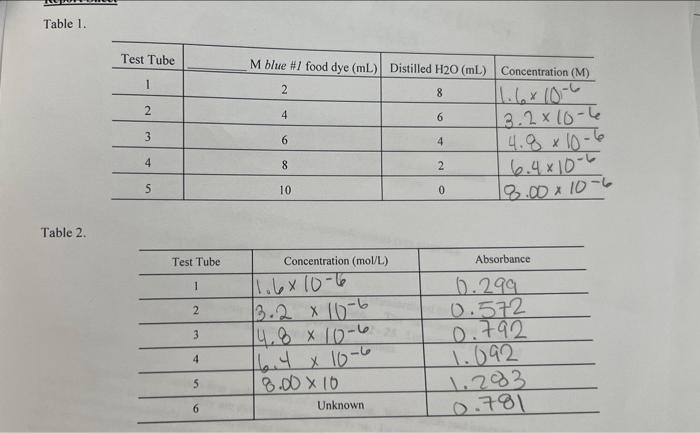 Report Sheet
Table 1.
Test Tube M blue #1 food dye (mL) Distilled H2O (mL) Concentration (M)
1 2 8 1.6 x 10-6
2 4 6 3.2 x 10-6
3 6 4 4.8 x 10-6
4 8 2 6.4 x 10-6
5 10 0 8.00 x 10-6
Table 2.
Test Tube Concentration (mol/L) Absorbance
1 1.6 x 10-6 0.299
2 3.2 x 10-6 0.572
3 4.8 x 10-6 0.792
4 6.4 x 10-6 1.092
5 8.00 x 10 1.283
6 Unknown 0.781